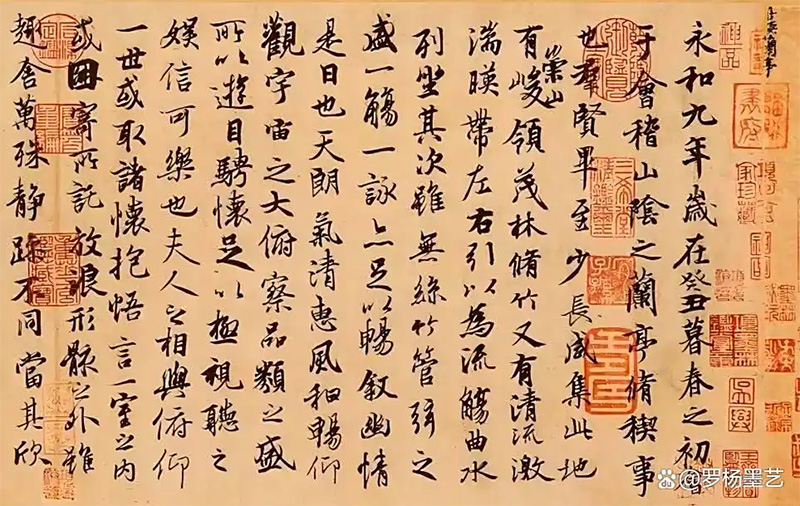 永和九年歲在癸丑暮春之初會
于會稽山陰之蘭亭脩稧事
也羣賢畢至少長咸集此地
有崇山峻領茂林脩竹又有清流激
湍暎帶左右引以為流觴曲水
列坐其次雖無絲竹管弦之
盛一觴一詠亦足以暢敘幽情
是日也天朗氣清惠風和暢仰
觀宇宙之大俯察品類之盛
所以遊目騁懷足以極視聽之
娛信可樂也夫人之相與俯仰
一世或取諸懷抱悟言一室之內
或因寄所託放浪形骸之外雖
趣舍萬殊靜躁不同當其欣
神品
@罗杨墨艺